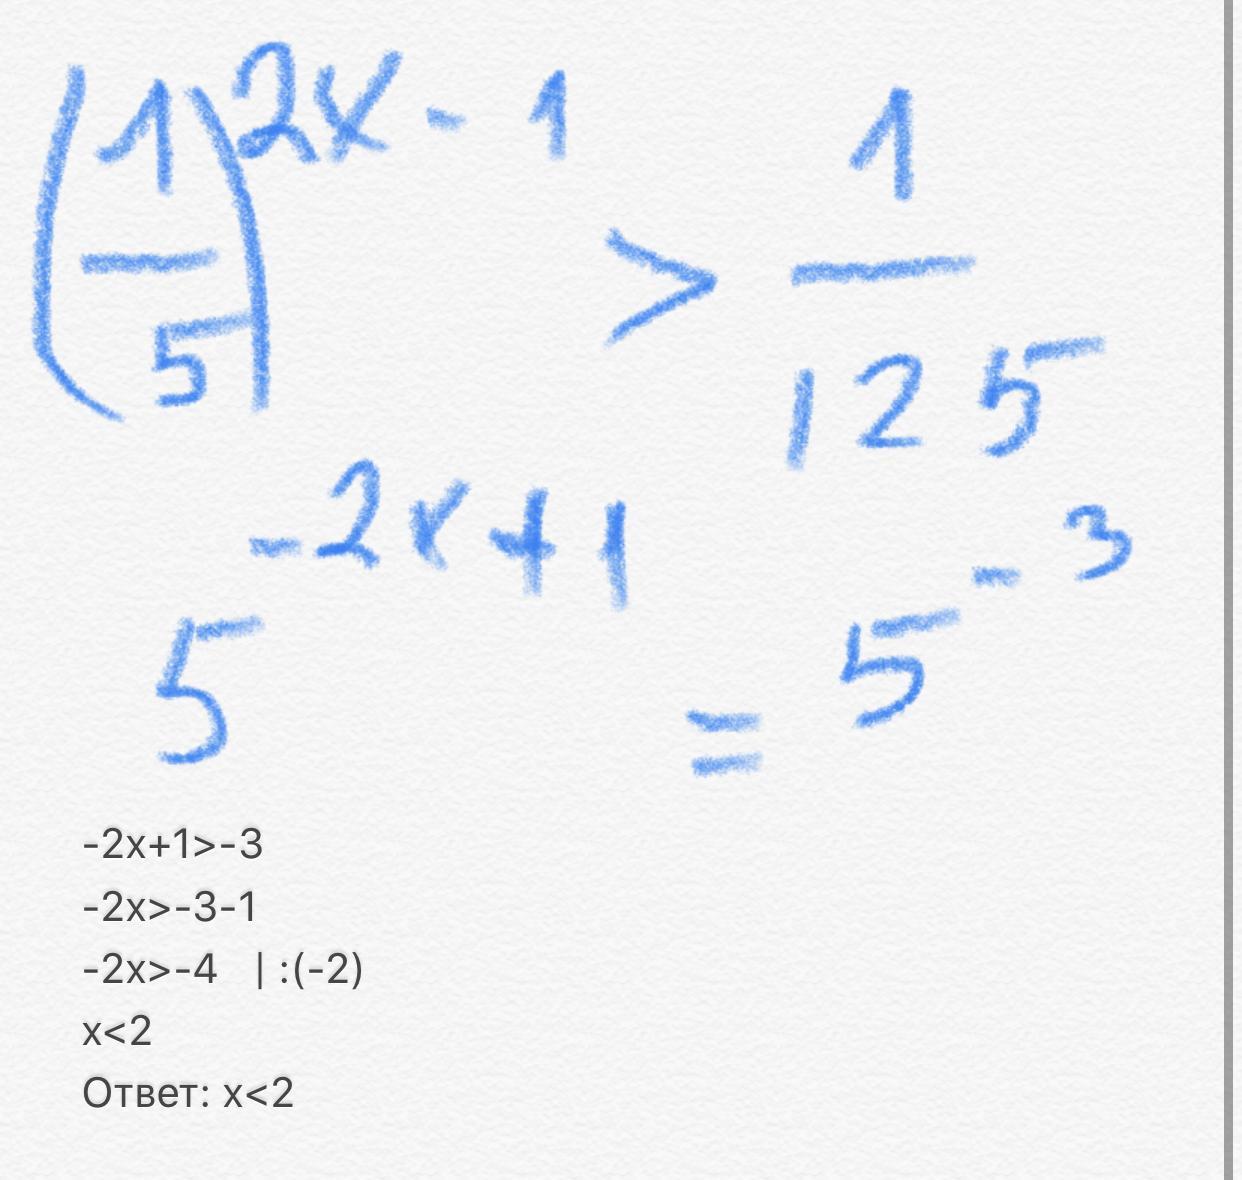 (1/5)^2x-1 > 1/125
5^-2x+1 = 5^-3
-2x+1>-3
-2x>-3-1
-2x>-4 | :(-2)
x<2
Ответ: x<2